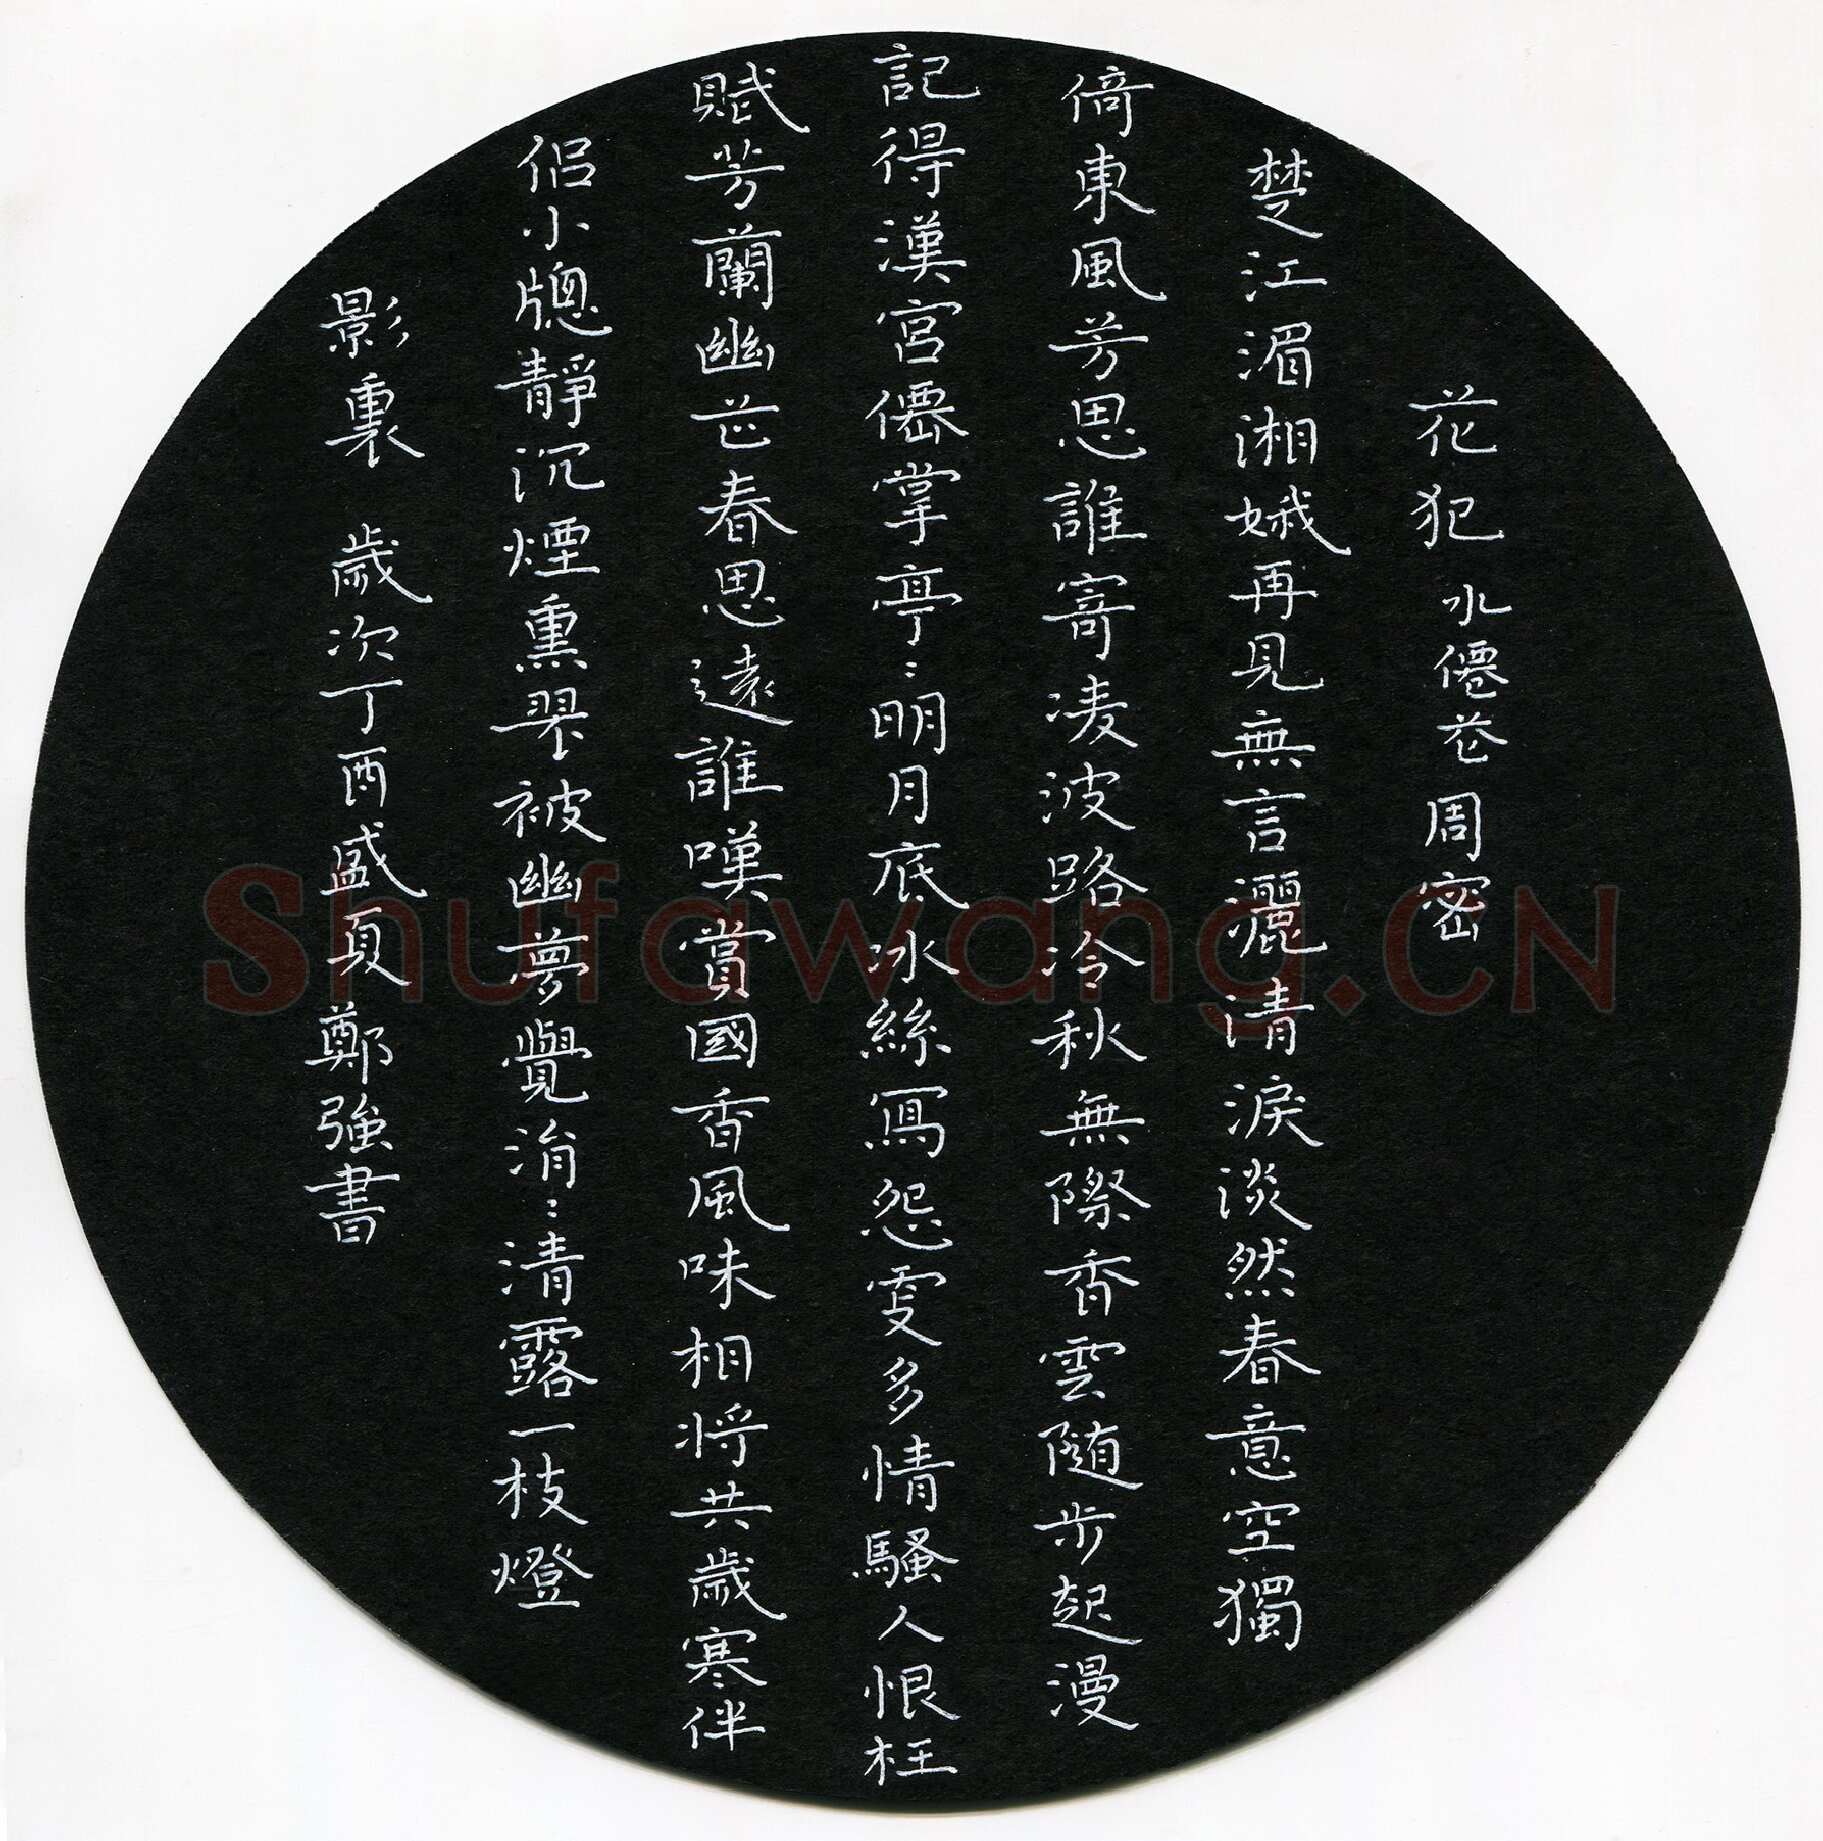 花犯 水僊花 周密
楚江湄湘娥再見無言灑清淚淡然春意空獨
倚東風芳思誰寄凌波路冷秋無際香雲隨步起漫
記得漢宮僊掌亭〻明月底冰絲寫怨更多情騷人恨枉
賦芳蘭幽芷春思遠誰嘆賞國香風味相將共歲寒伴
侶小牕靜沉煙熏翠被幽夢覺涓〻清露一枝燈
影裏 歲次丁酉盛夏鄭強書
Shufawang.CN